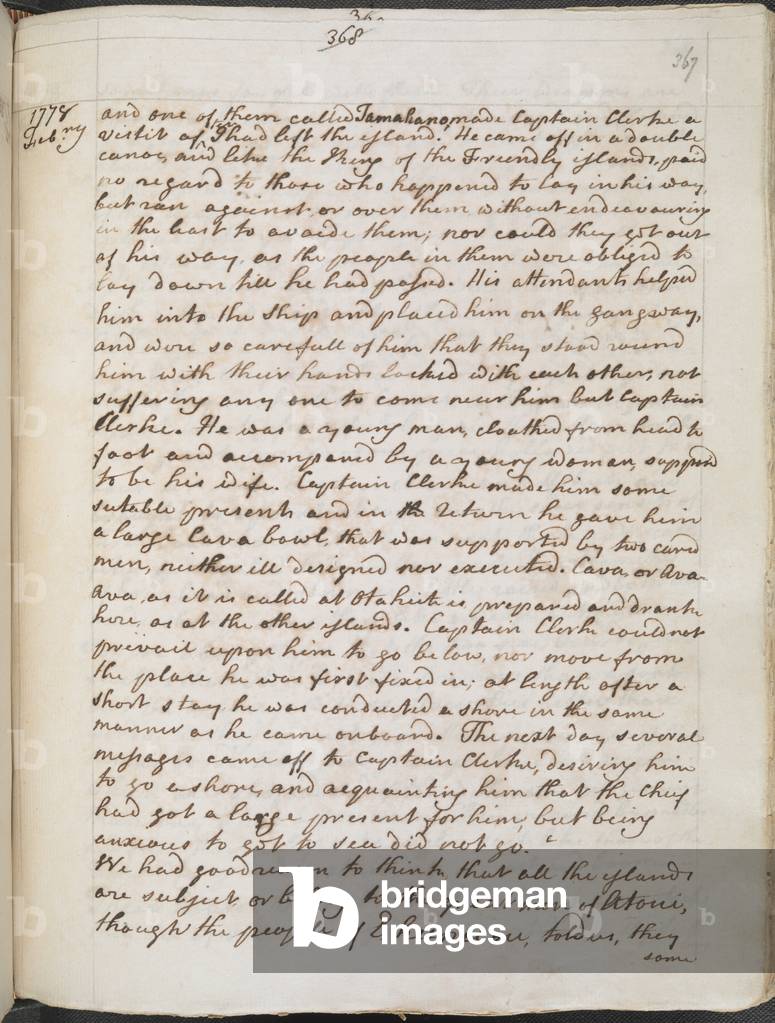 368
367
1778
Feb:ry
and one of them called Tamahano, made Captain Clerke a
visit after I had left the island. He came off in a double
canoe, and like the King of the Freindly islands, paid
no regard to those who happened to lay in his way,
but ran against or over them without endeavouring
in the least to avoide them; nor could they get out
of his way, as the people in them were obliged to
lay down till he had passed. His attendants helped
him into the ship and placed him on the gangway,
and were so carefull of him that they stood round
him with their hands locked with each other, not
suffering any one to come near him but Captain
Clerke. He was a young man, cloathed from head to
foot and accompaned by a young woman, supposed
to be his wife. Captain Clerke made him some
sutable presents and in the return he gave him
a large Cava bowl, that was supported by two carved
men, neither ill designed nor executed. Cava, or Ava-
Ava, as it is called at Otaheite is prepared and drank
here, as at the other islands. Captain Clerke could not
prevail upon him to go below, nor move from
the place he was first fixed in; at length after a
short stay he was conducted a shore in the same
manner as he came onboard. The next day several
messages came off to Captain Clerke, desiring him
to go a shore, and acquainting him that the Chief
had got a large present for him; but being
anxious to get to sea did not go.
We had good reason to think that all the islands
are subject, or of Atoui,
though the people of told us, they
some
bridgeman
images
b